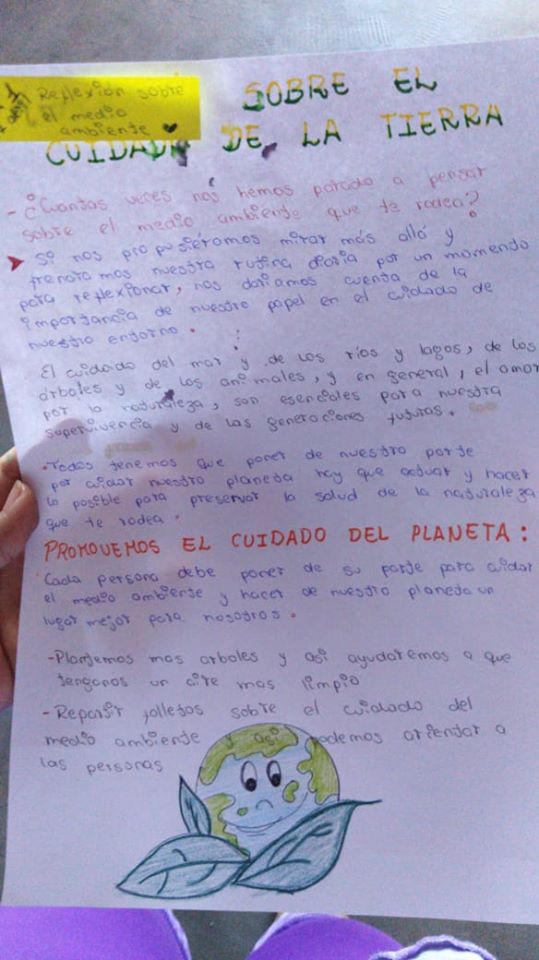 Reflexión sobre
el medio
ambiente
SOBRE EL
CUIDADO DE LA TIERRA
- ¿Cuantas veces nos hemos parado a pensar
sobre el medio ambiente que te rodea?
Si nos propusiéramos mirar más allá y
frenaramos nuestra rutina diaria por un momento
para reflexionar, nos dariamos cuenta de la
importancia de nuestro papel en el cuidado de
nuestro entorno.
El cuidado del mar y de los ríos y lagos, de los
árboles y de los animales, y en general, el amor
por la naturaleza, son esenciales para nuestra
supervivencia y de las generaciones futuras.
•Todos tenemos que poner de nuestro parte
por cuidar nuestro planeta hay que actuar y hacer
lo posible para preservar la salud de la naturaleza
que te rodea.
PROMOVEMOS EL CUIDADO DEL PLANETA:
Cada persona debe poner de su parte para cuidar
el medio ambiente y hacer de nuestro planeta un
lugar mejor para nosotros.
-Plantemos mas arboles y asi ayudaremos a que
tengamos un aire mas limpio
-Repartir folletos sobre el cuidado del
medio ambiente y asi podemos orientar a
las personas